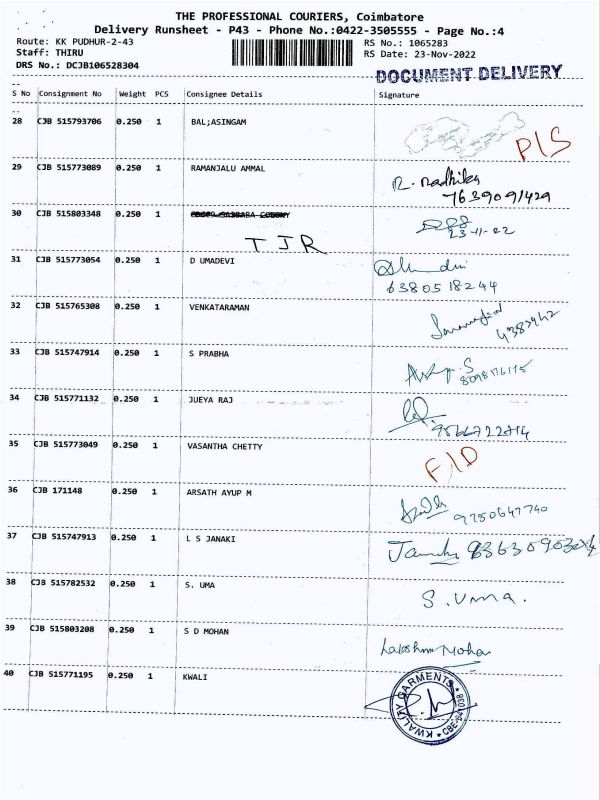 THE PROFESSIONAL COURIERS, Coimbatore
Delivery Runsheet - P43 - Phone No.:0422-3505555 - Page No.:4
Route: KK PUDHUR-2-43 RS No.: 1065283
Staff: THIRU RS Date: 23-Nov-2022
DRS No.: DCJB106528304
DOCUMENT DELIVERY
S No Consignment No Weight PCS Consignee Details Signature
28 CJB 515793706 0.250 1 BAL;ASINGAM
P/S
29 CJB 515773089 0.250 1 RAMANJALU AMMAL
R. Radhika
7639091429
30 CJB 515803348 0.250 1
TJR
23-11-22
31 CJB 515773054 0.250 1 D UMADEVI
6380518244
32 CJB 515765308 0.250 1 VENKATARAMAN
33 CJB 515747914 0.250 1 S PRABHA
34 CJB 515771132 0.250 1 JUEYA RAJ
35 CJB 515773049 0.250 1 VASANTHA CHETTY
F/D
36 CJB 171148 0.250 1 ARSATH AYUP M
9750647740
37 CJB 515747913 0.250 1 L S JANAKI
38 CJB 515782532 0.250 1 S. UMA
S. Uma.
39 CJB 515803208 0.250 1 S D MOHAN
Lakshmi Mohan
40 CJB 515771195 0.250 1 KWALI
KWALITY GARMENTS
CBE-641038